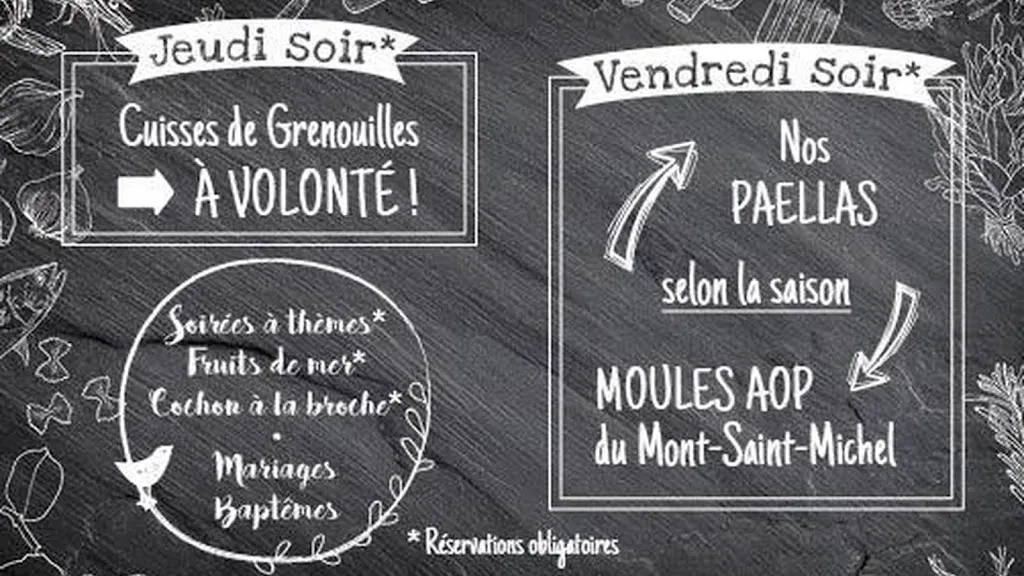 Jeudi Soir*
Cuisses de Grenouilles
À VOLONTÉ !
Soirées à thèmes*
Fruits de mer*
Cochon à la broche*
•
Mariages
Baptêmes
Vendredi Soir*
Nos
PAELLAS
selon la saison
MOULES AOP
du Mont-Saint-Michel
* Réservations obligatoires